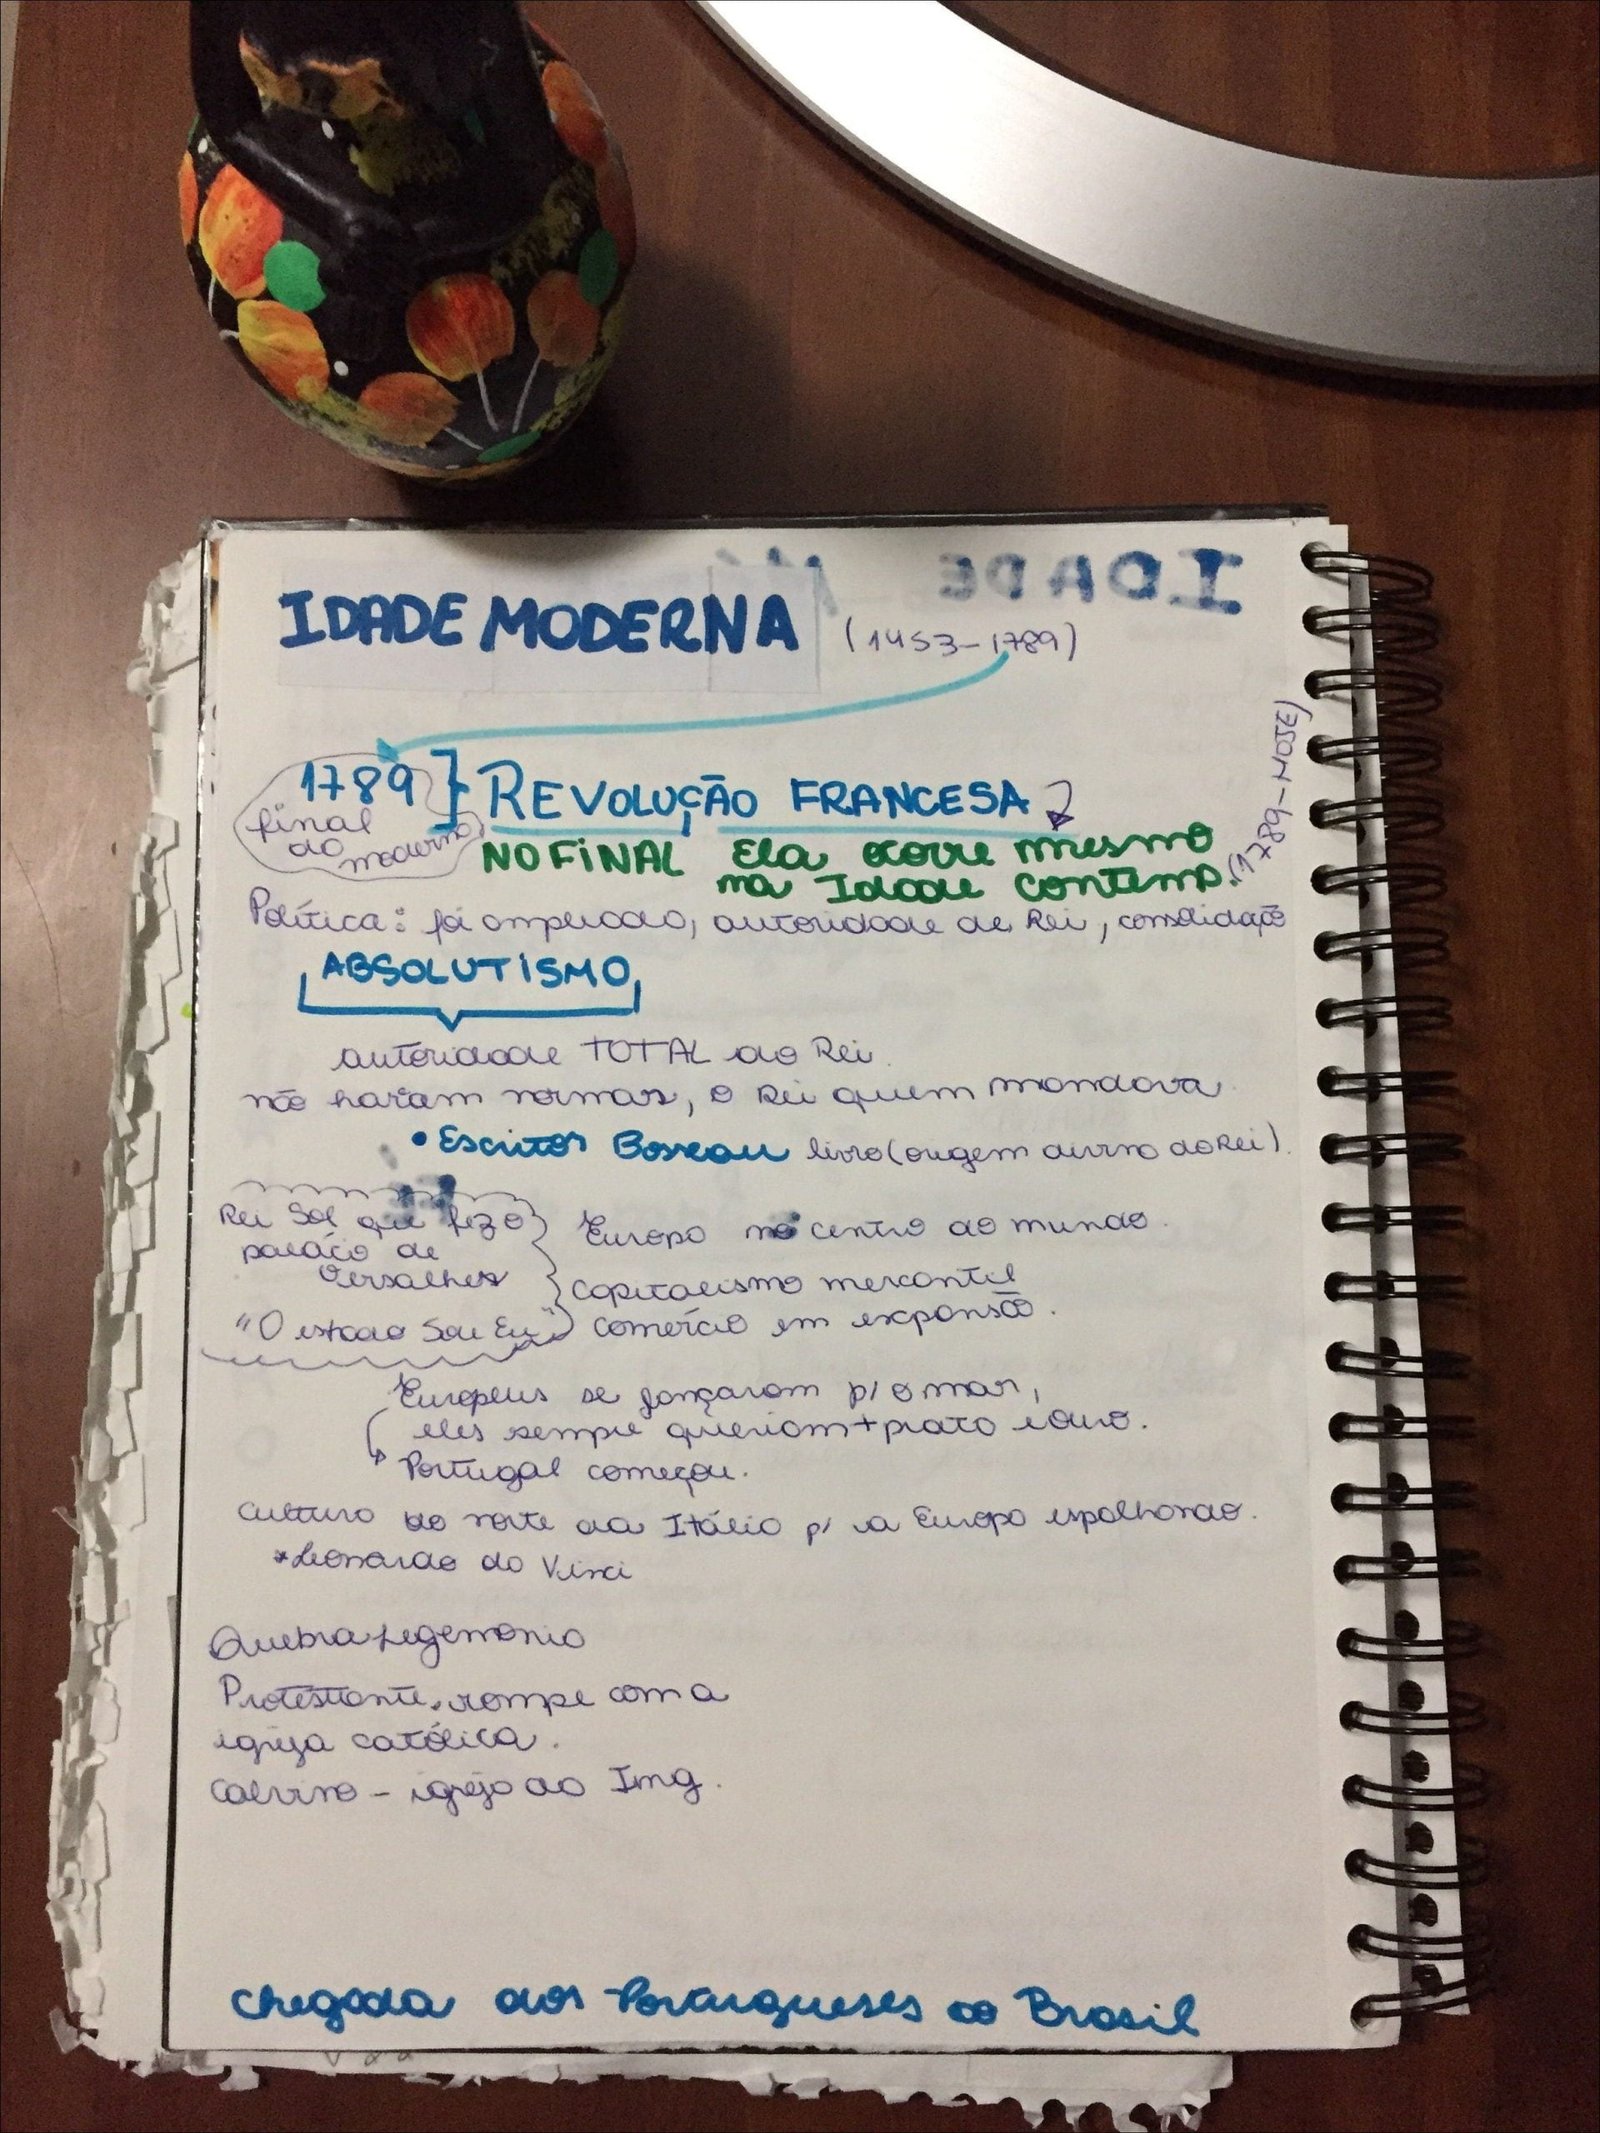 IDADE MODERNA (1453-1789)
1789 } REVOLUÇÃO FRANCESA
final da moderna
NO FINAL Ela ocorre mesmo
na Idade contemp. (1789-HOJE)
Política: foi ampliada, autoridade de Rei, consolidação
ABSOLUTISMO
autoridade TOTAL do Rei.
não haviam normas, o Rei quem mandava.
• Escritor livro (origem divina do Rei).
Rei Sol que fez o
palácio de
Versalhes
"O estado Sou Eu"
Europa no centro do mundo.
capitalismo mercantil
comércio em expansão.
Europeus se lançaram p/ o mar,
eles sempre queriam + prata e ouro.
Portugal começou.
cultura do norte da Itália p/ a Europa espalhando.
*Leonardo da Vinci
Quebra hegemonia
Protestante. rompe com a
igreja católica.
Calvino - igreja da Ing.
chegada dos Portugueses ao Brasil